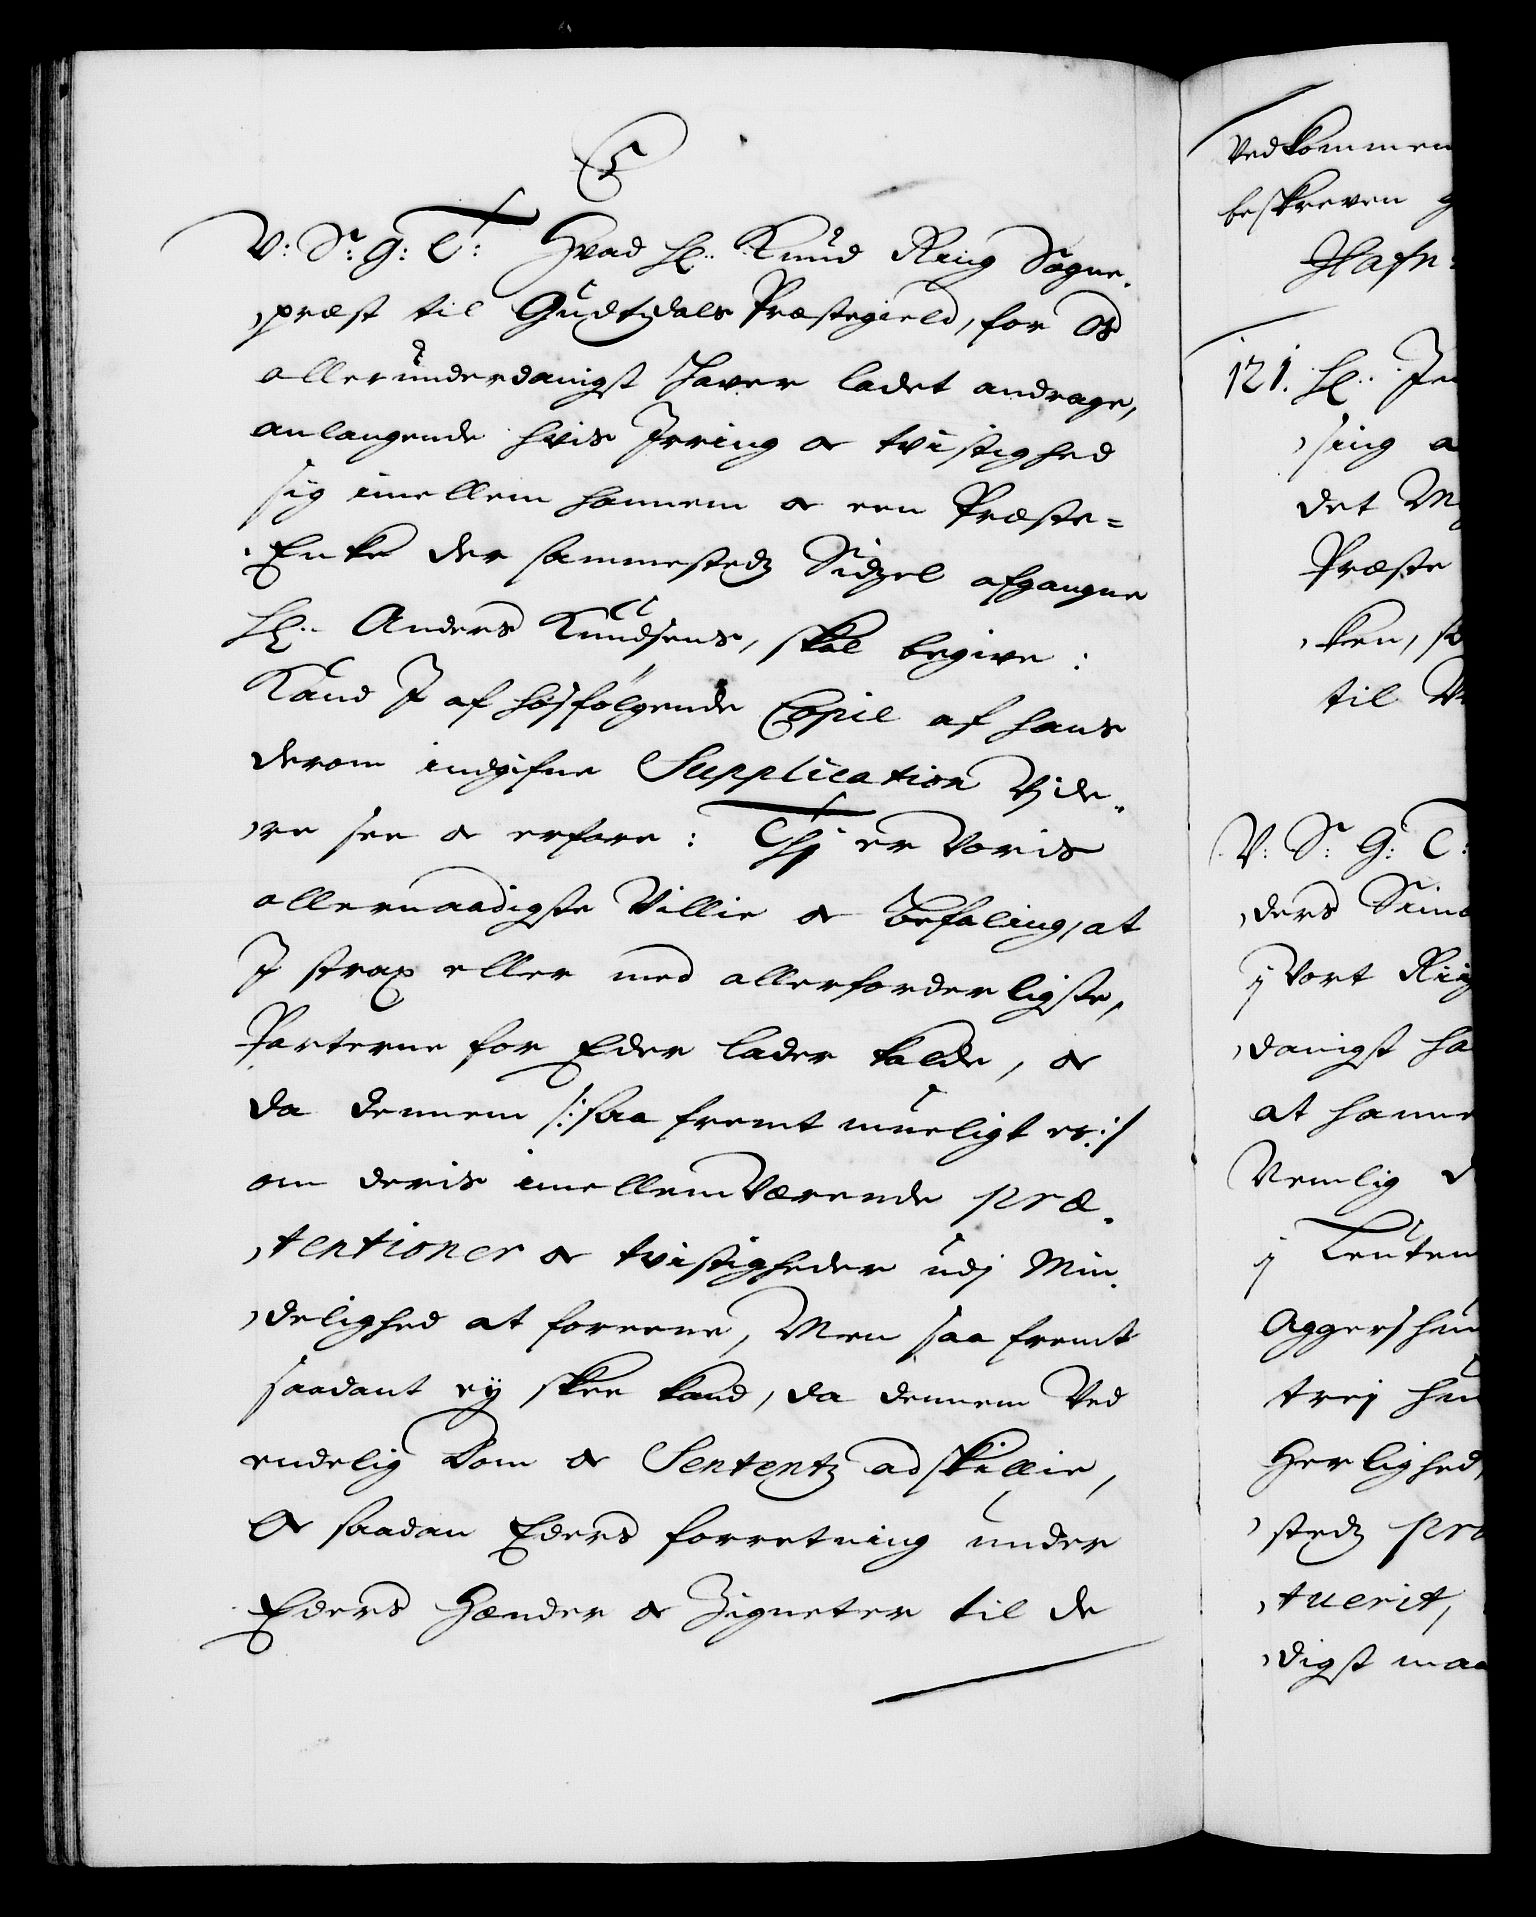 V: S: G: T: Hvad Hr: Knud Ring Sogne-
præst til Gudtzdals Præstegield, for Os
allerunderdanigst haver ladet andrage,
anlangende hvis Irring oc tvistighed
sig imellem hannem oc een Præste-
Enke der sammestedz Sidzel afgangne
Hr: Anders Knudsens, skal begive:
Kand I af hosfølgende Copie af hans
derom indgifne Supplication Vide-
re see oc erfare: Thj er Voris
allernaadigste Villie oc Befaling, at
I strax eller med allerforderligste,
Parterne for Eder lader kalde, oc
da dennem /: saa fremt mueligt er :/
om deris imellemværende præ-
tentioner oc tvistigheder udj Min-
delighed at foreene, Men saa fremt
saadant ey skee kand, da dennem Ved
endelig Dom oc Sententz adskillie,
Oc saadan Eders forretning under
Eders Hænder oc Zigneter til de
Vedkommen
beskreven g
Hafn:
121. Hr: Jen
sing a
det M
Præste
ken, s
til V
V: S: G: T:
ders Sim
j Vort Rig
danigst ha
at hanne
Nemlig d
j Leuten
Aggershuu
trej hu
Herlighed,
stedz præ
tuerit,
digst maa